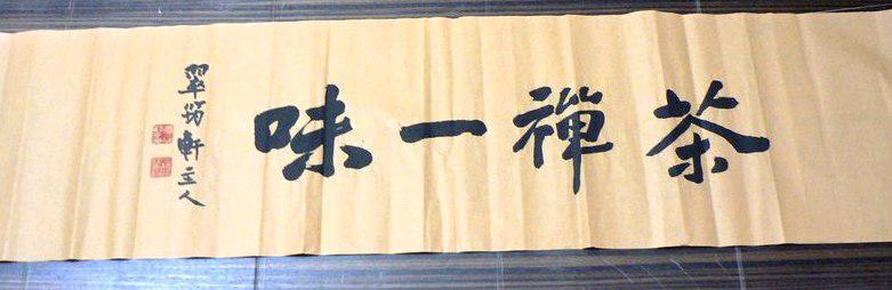 茶禪一味
翠筠軒主人